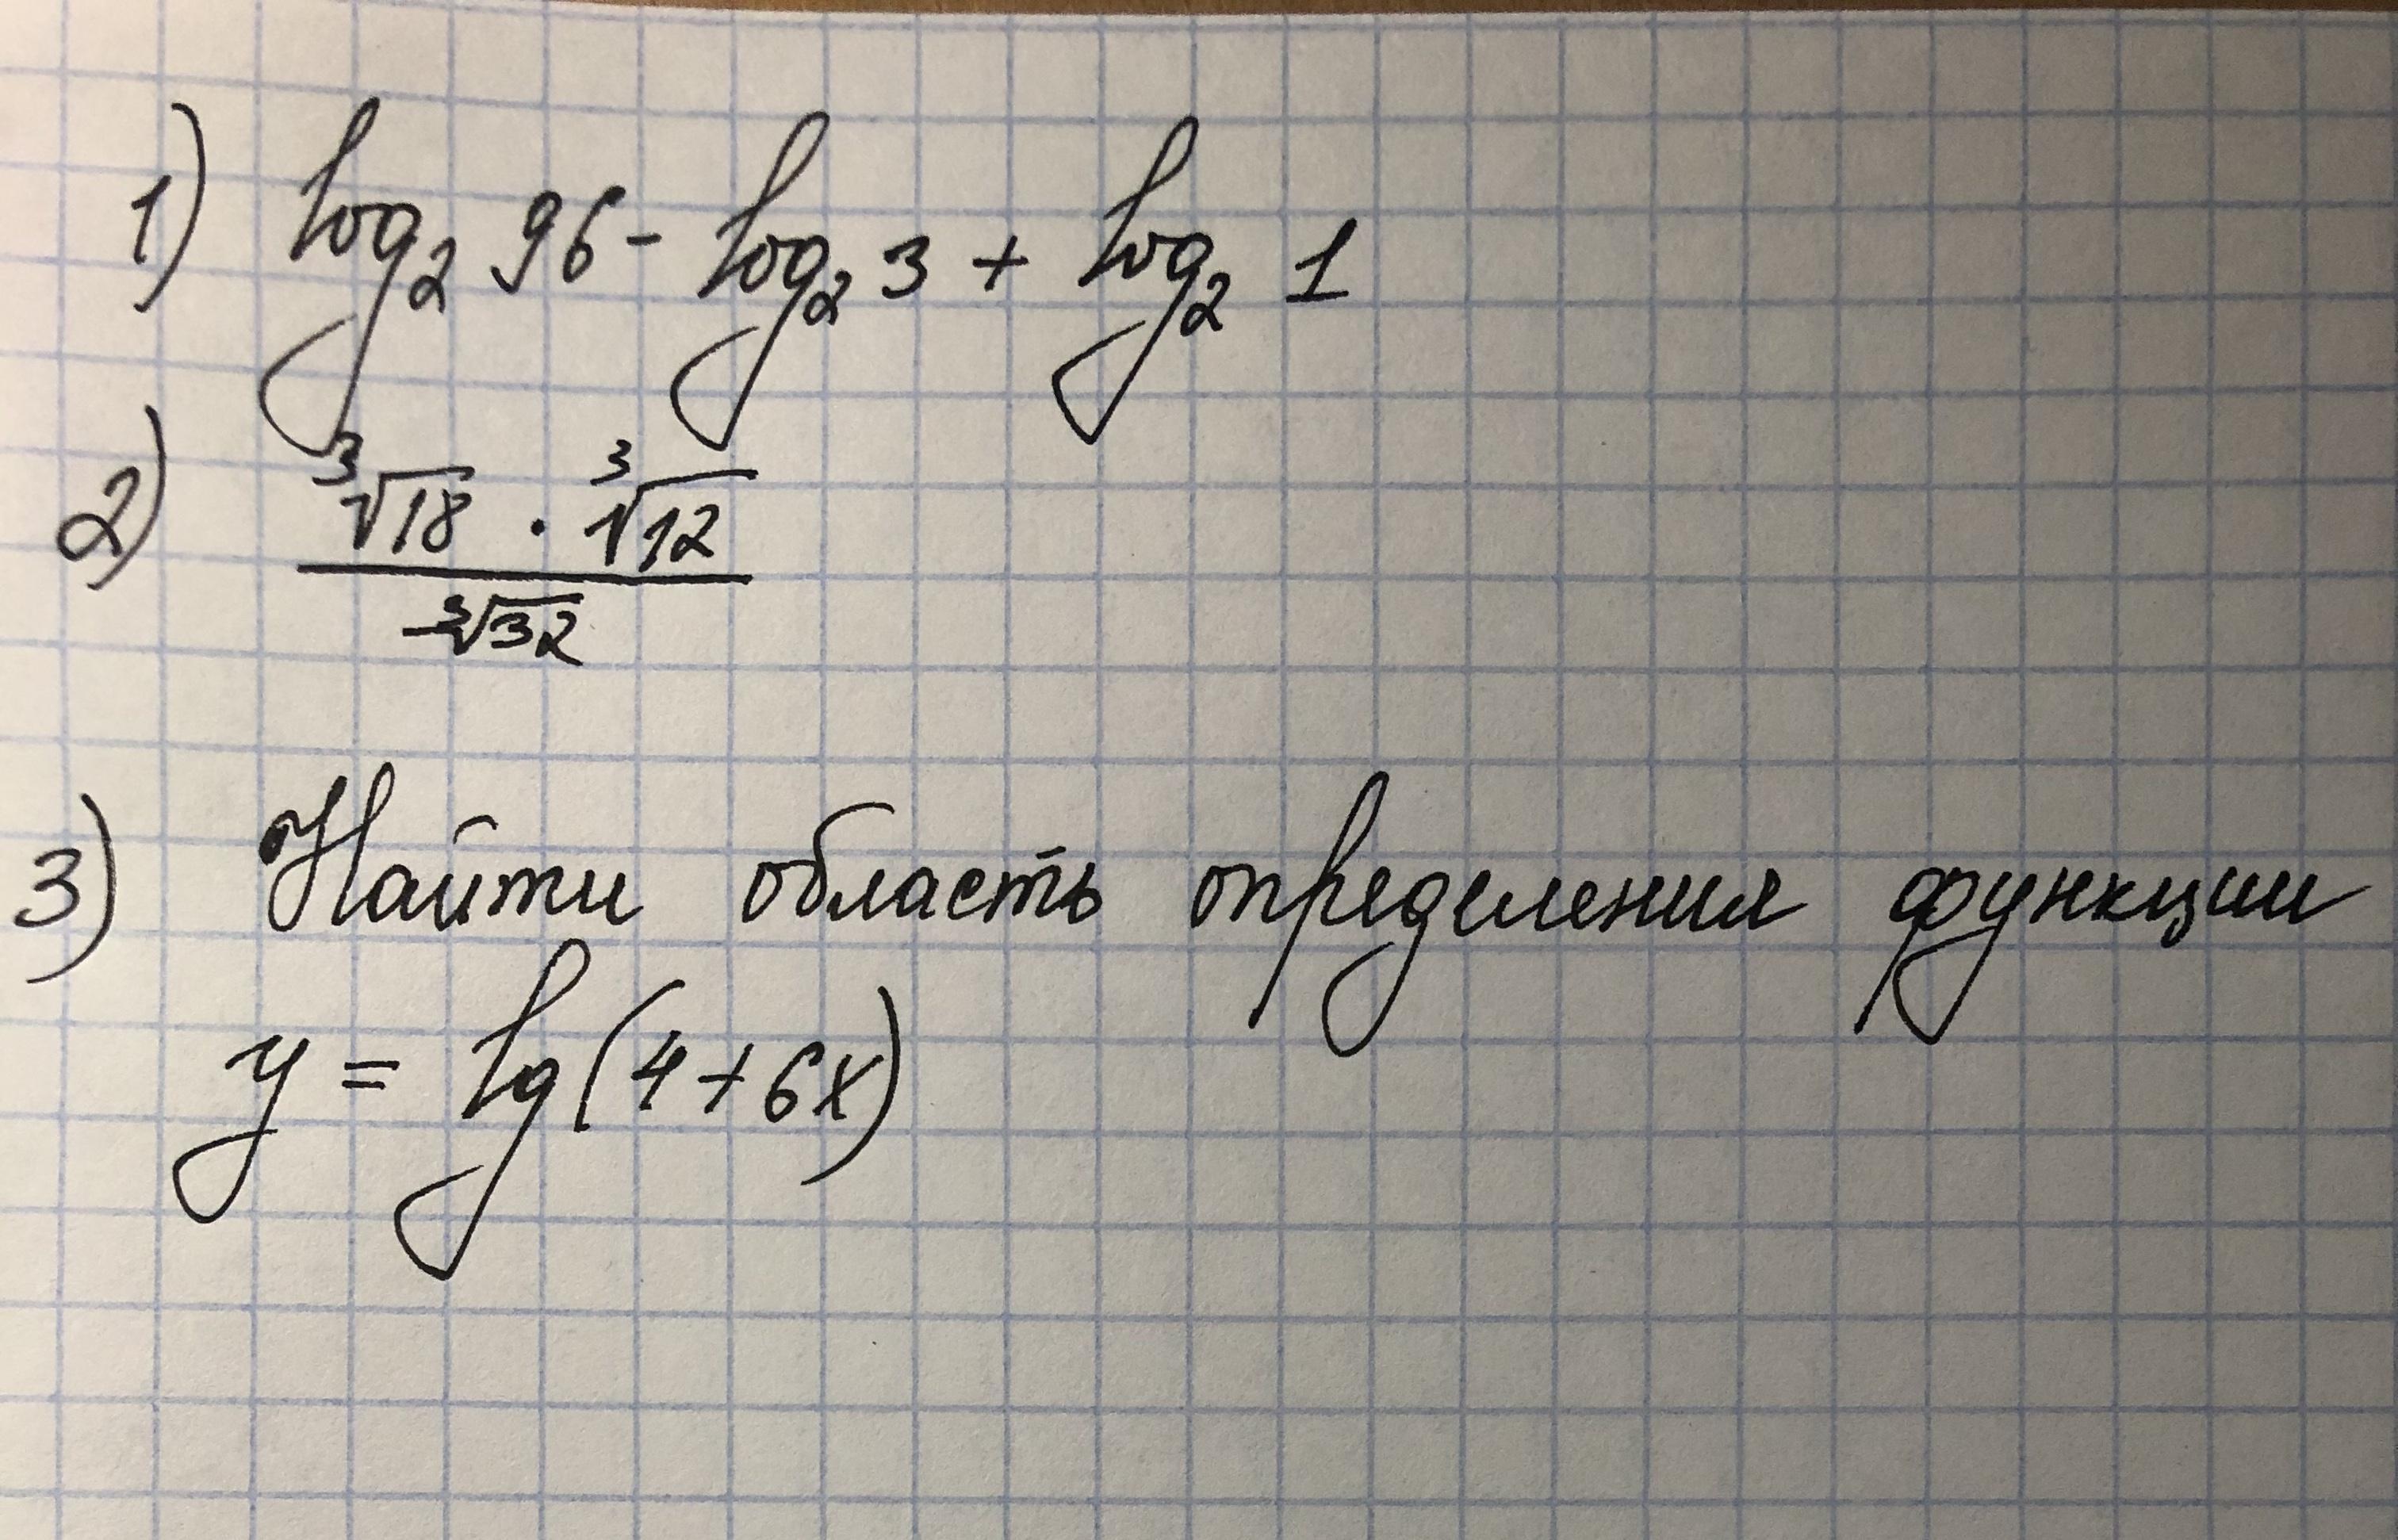 1) log₂ 96 - log₂ 3 + log₂ 1
2) ∛18 · ∛12
∛32
3) Найти область определения функции
y = lg(4+6x)